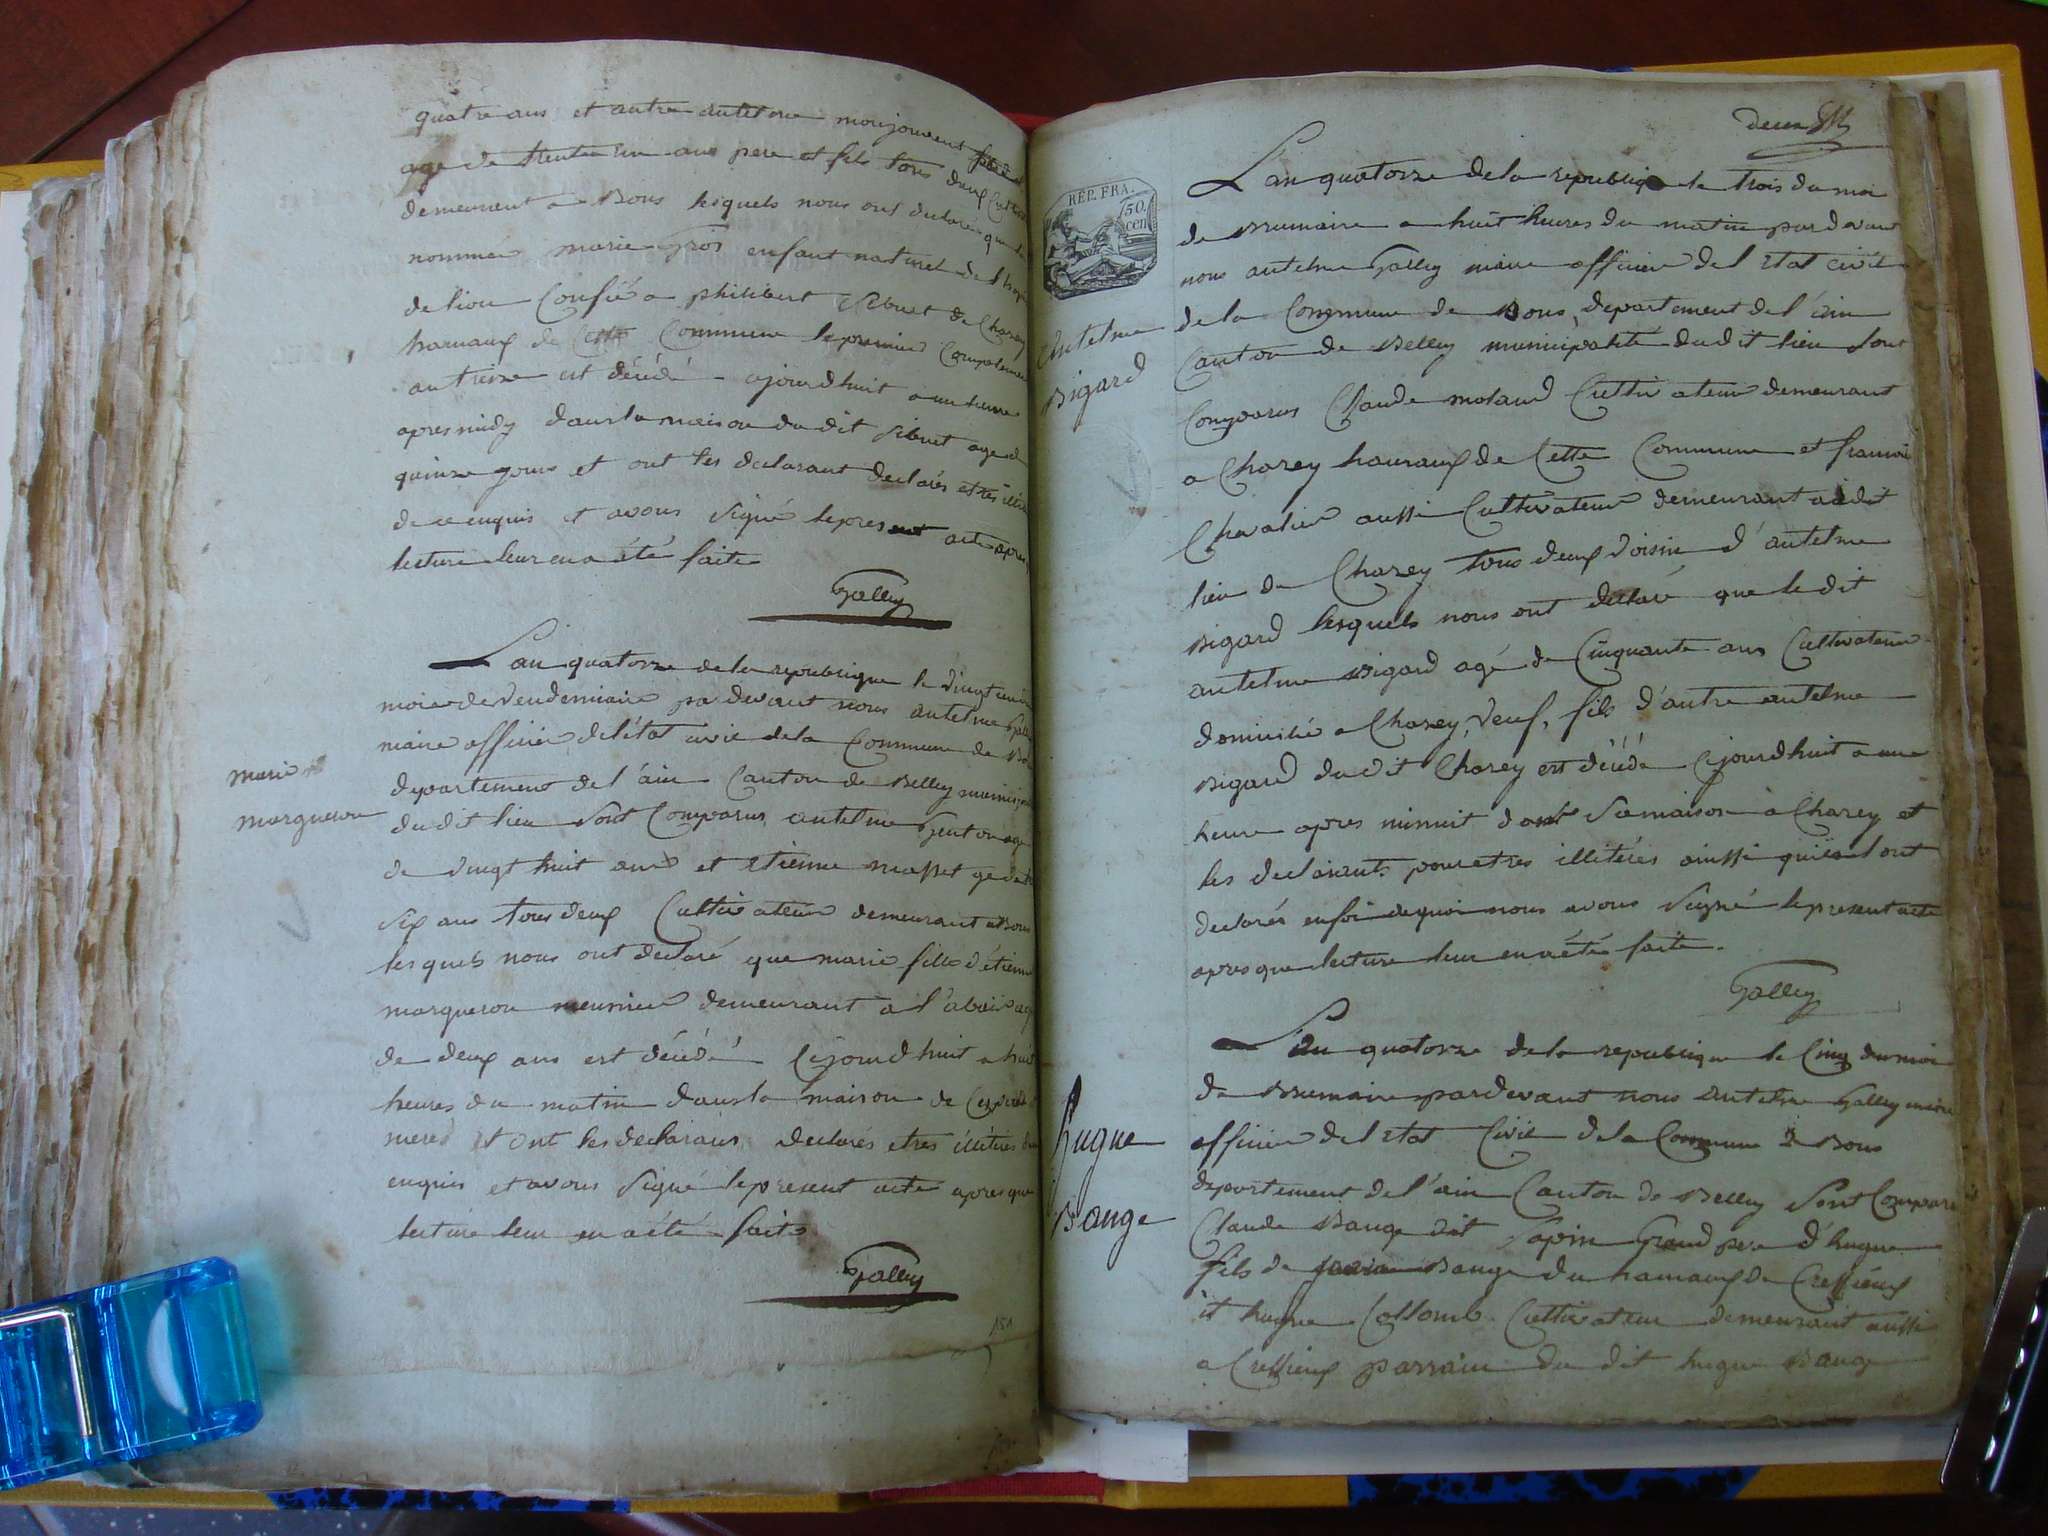 quatre ans et autre antelme monjournent
age de trente un ans pere et fils tous deux
demeurent a Bons lesquels nous ont declaré que
nommee marie Gros enfant naturel de
de lion Confié a philibert Sibuet de Charey
hamaux de Cette Commune le premier
an treize est décédé ajourdhuit a une heure
apres midy dans la maison du dit Sibuet age de
quinze jours et ont les declarant declarés etres
de ce enquis et avons Signé le present acte apres
lecture leur en a été faite
Galley
Lan quatorze de la republique le vingt
mois de Vendemiaire par devant nous antelme
maire officier de létat civil de la Commune de
departement de l'ain Canton de Belley
du dit lieu Sont Comparus antelme
de vingt huit ans et Etienne masset
Six ans tous deux Cultivateur demeurant a Bons
lesquels nous ont declaré que marie fille d'étienne
marqueron meunier demeurant a l'abaie
de deux ans est décédé Cejourdhuit a huit
heures du matin dans la maison de Ces
meres et ont les declarans declarés etres illétirés
enquis et avons Signé le present acte apres que
lecture leur en a été faite
Galley
marie
marqueron
151
deux
Lan quatorze de la republique le trois du moi
de Brumaire a huit heures du matin par devant
nous antelme Galley maire officier de l Etat civil
de la Commune de Bons, departement de l'ain
Canton de Belley municipalité du dit lieu Sont
Comparus Claude moland Cultivateur demeurant
a Charey hauraux de Cette Commune et francois
Chevalier aussi Cultivateur demeurant au dit
lieu de Charey tous deux voisin d'antelme
Bigard lesquels nous ont declaré que le dit
antelme Bigard agé de Cinquante ans Cultivateur
domicilié a Charey, Veuf, fils d'autre antelme
Bigard du dit Charey est décédé Cejourdhuit a une
heure apres minuit dant Sa maison à Charey et
les declarants pour etres illétérés ainssi quil ont
declarés enfoi de quoi nous avons Signé le present acte
apres que lecture leur en a été faite.
Galley
REP. FRA.
50
cen
Antelme
Bigard
Lan quatorze de la republique le Cinq du moi
de Brumaire par devant nous Antelme Galley maire
officier de l Etat Civil de la Commune de Bons
departement de l'ain Canton de Belley Sont Comparu
Claude Bauge dit Sapin Grand pere d'hugue
fils de Bauge du hamaux de Cressieux
et hugue Collomb Cultivateur demeurant aussi
a Cressieux parrain du dit hugue Bauge
hugue
Bauge